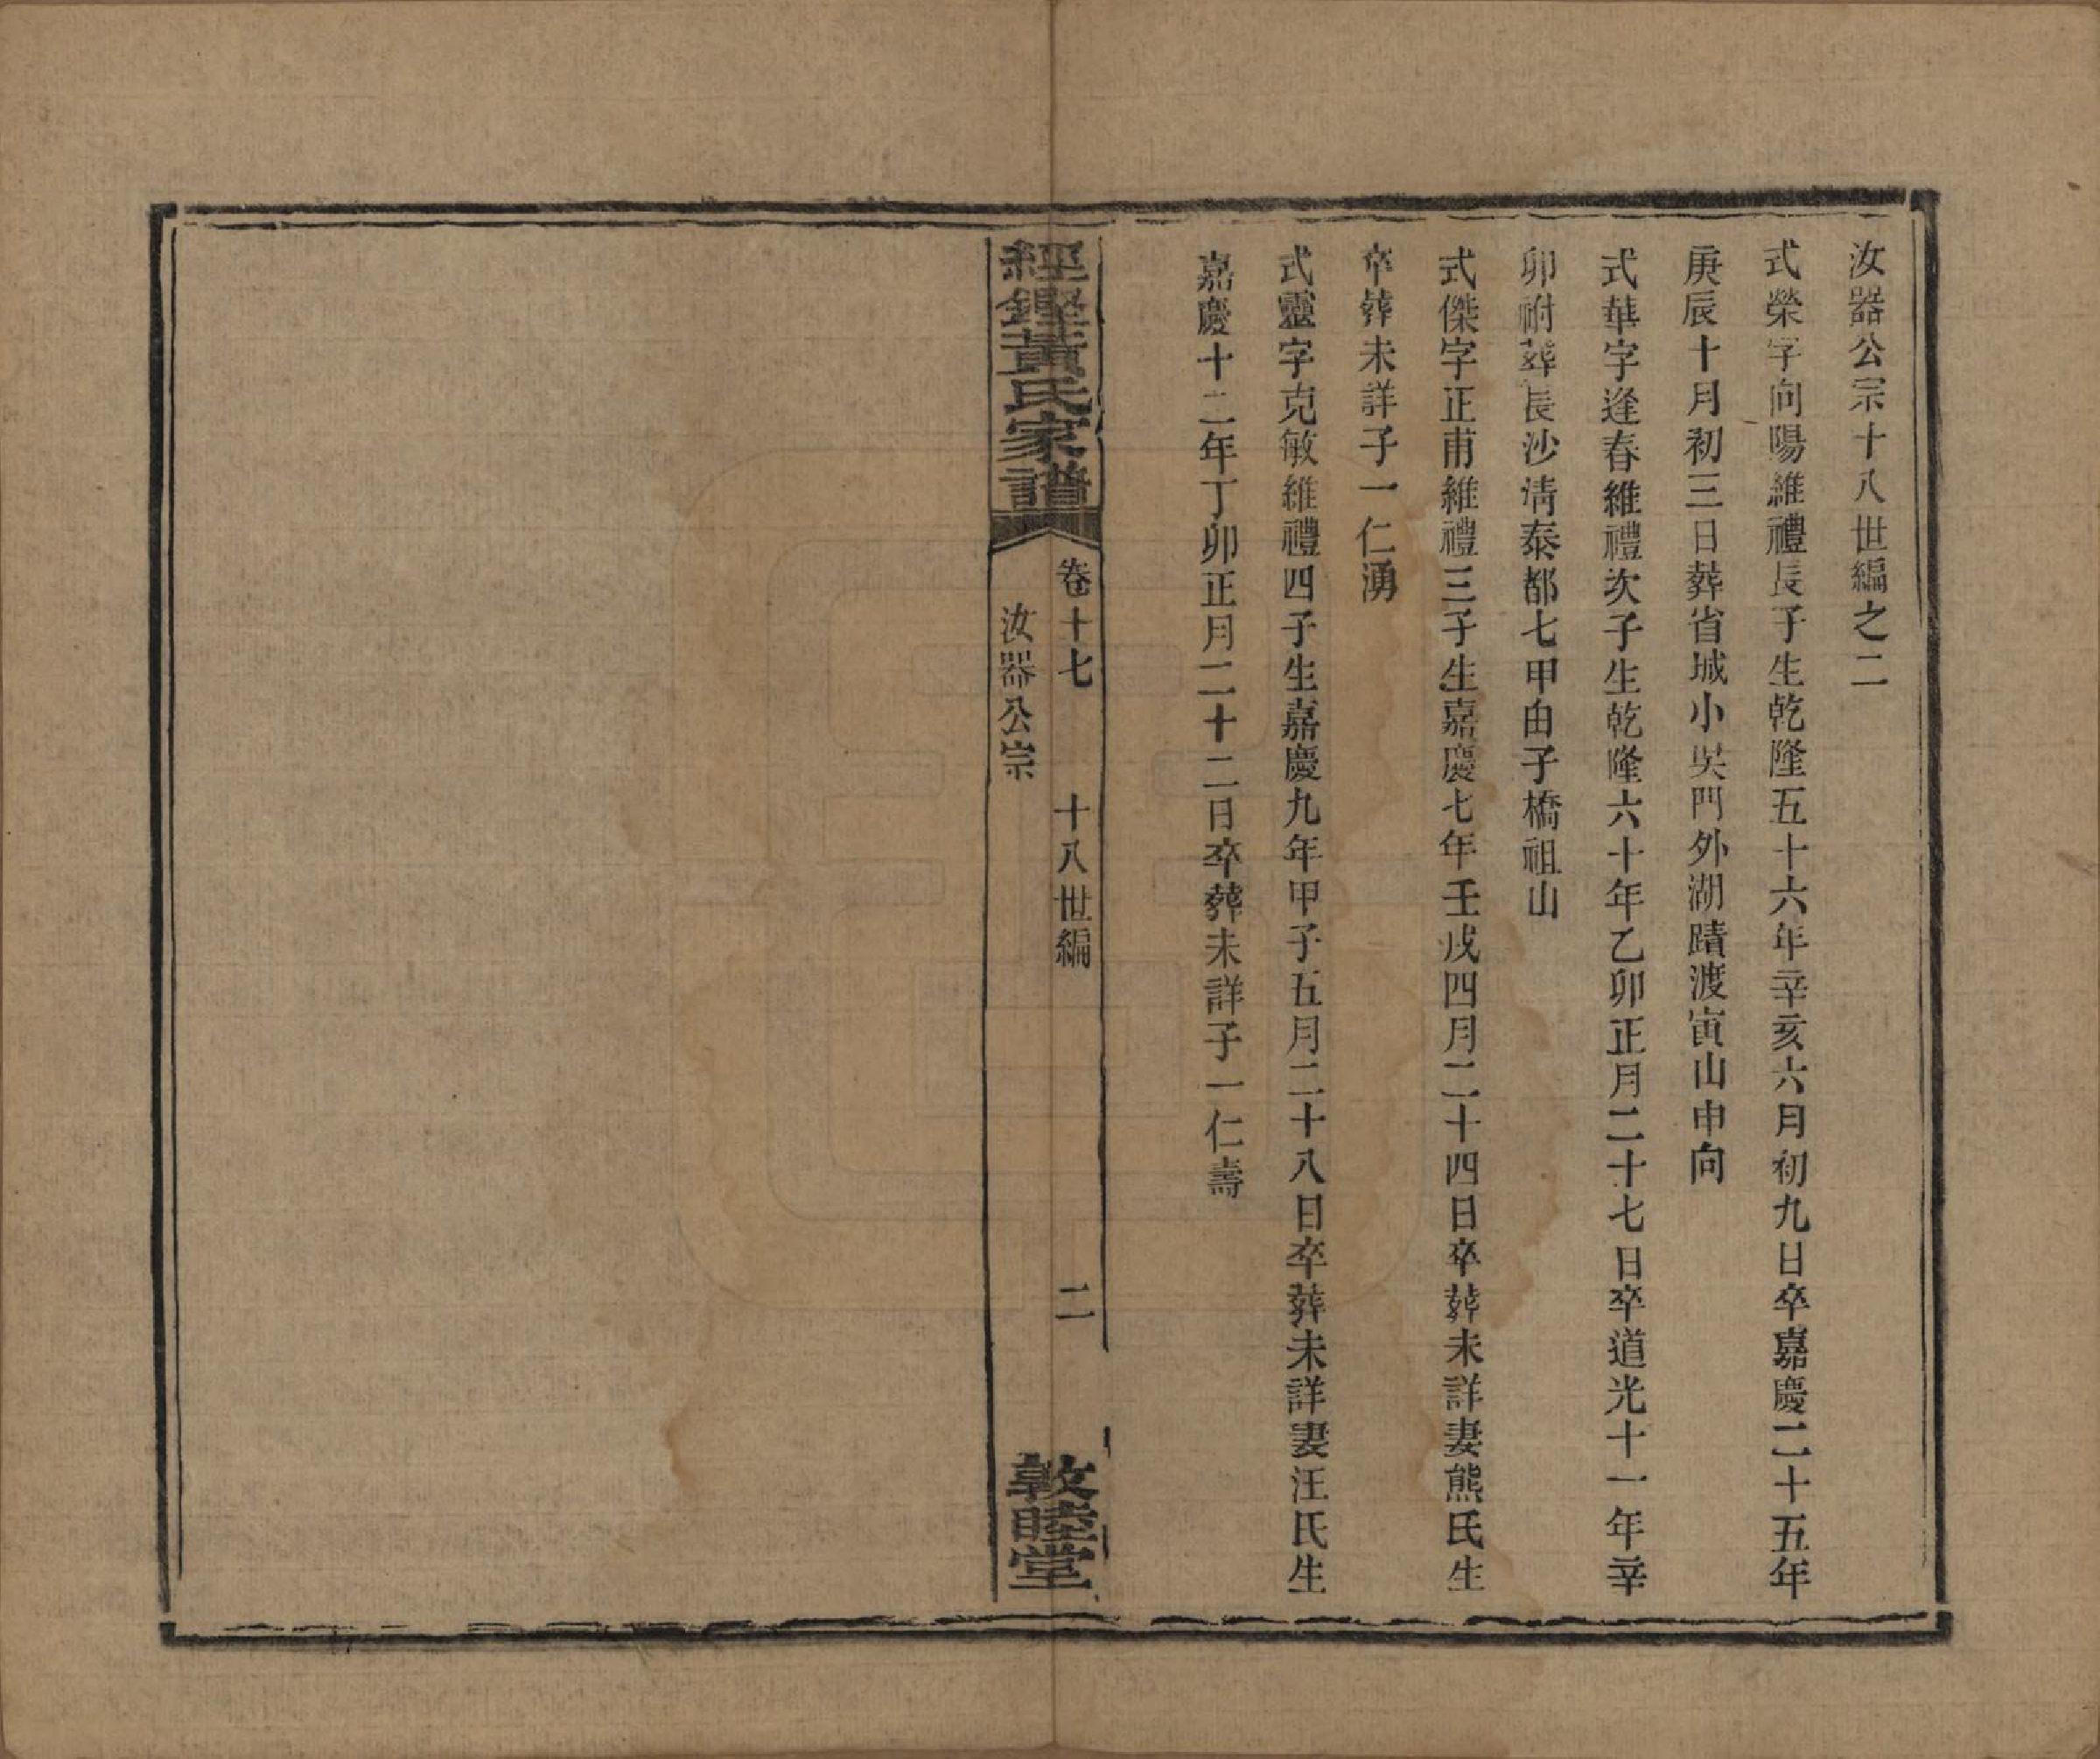 汝器公宗十八世編之二
式榮字向陽維禮長子生乾隆五十六年辛亥六月初九日卒嘉慶二十五年
庚辰十月初三日葬省城小吳門外湖蹟渡寅山申向
式華字逢春維禮次子生乾隆六十年乙卯正月二十七日卒道光十一年辛
卯祔葬長沙清泰都七甲由子橋祖山
式傑字正甫維禮三子生嘉慶七年壬戌四月二十四日卒葬未詳妻熊氏生
卒葬未詳子一仁湧
式靈字克敏維禮四子生嘉慶九年甲子五月二十八日卒葬未詳妻汪氏生
嘉慶十二年丁卯正月二十二日卒葬未詳子一仁壽
經鏗黃氏家譜
卷十七 十八世編 二
汝器公宗
敦睦堂